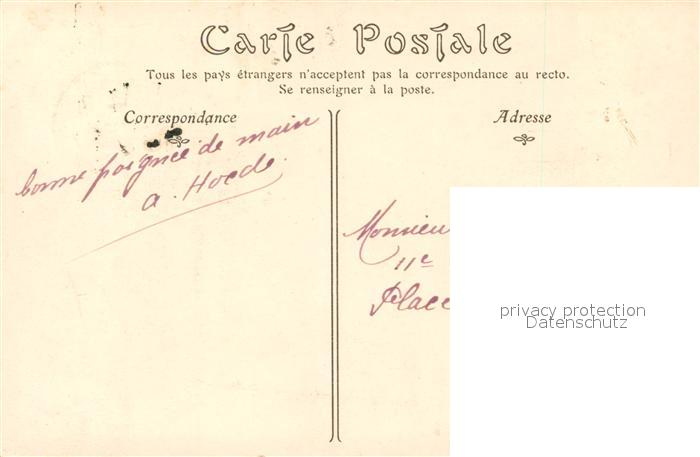 Carte Postale
Tous les pays étrangers n'acceptent pas la correspondance au recto.
Se renseigner à la poste.
Correspondance
bonne poignée de main
a. Hoede.
Adresse
Monsieu
11e
Place
privacy protection
Datenschutz